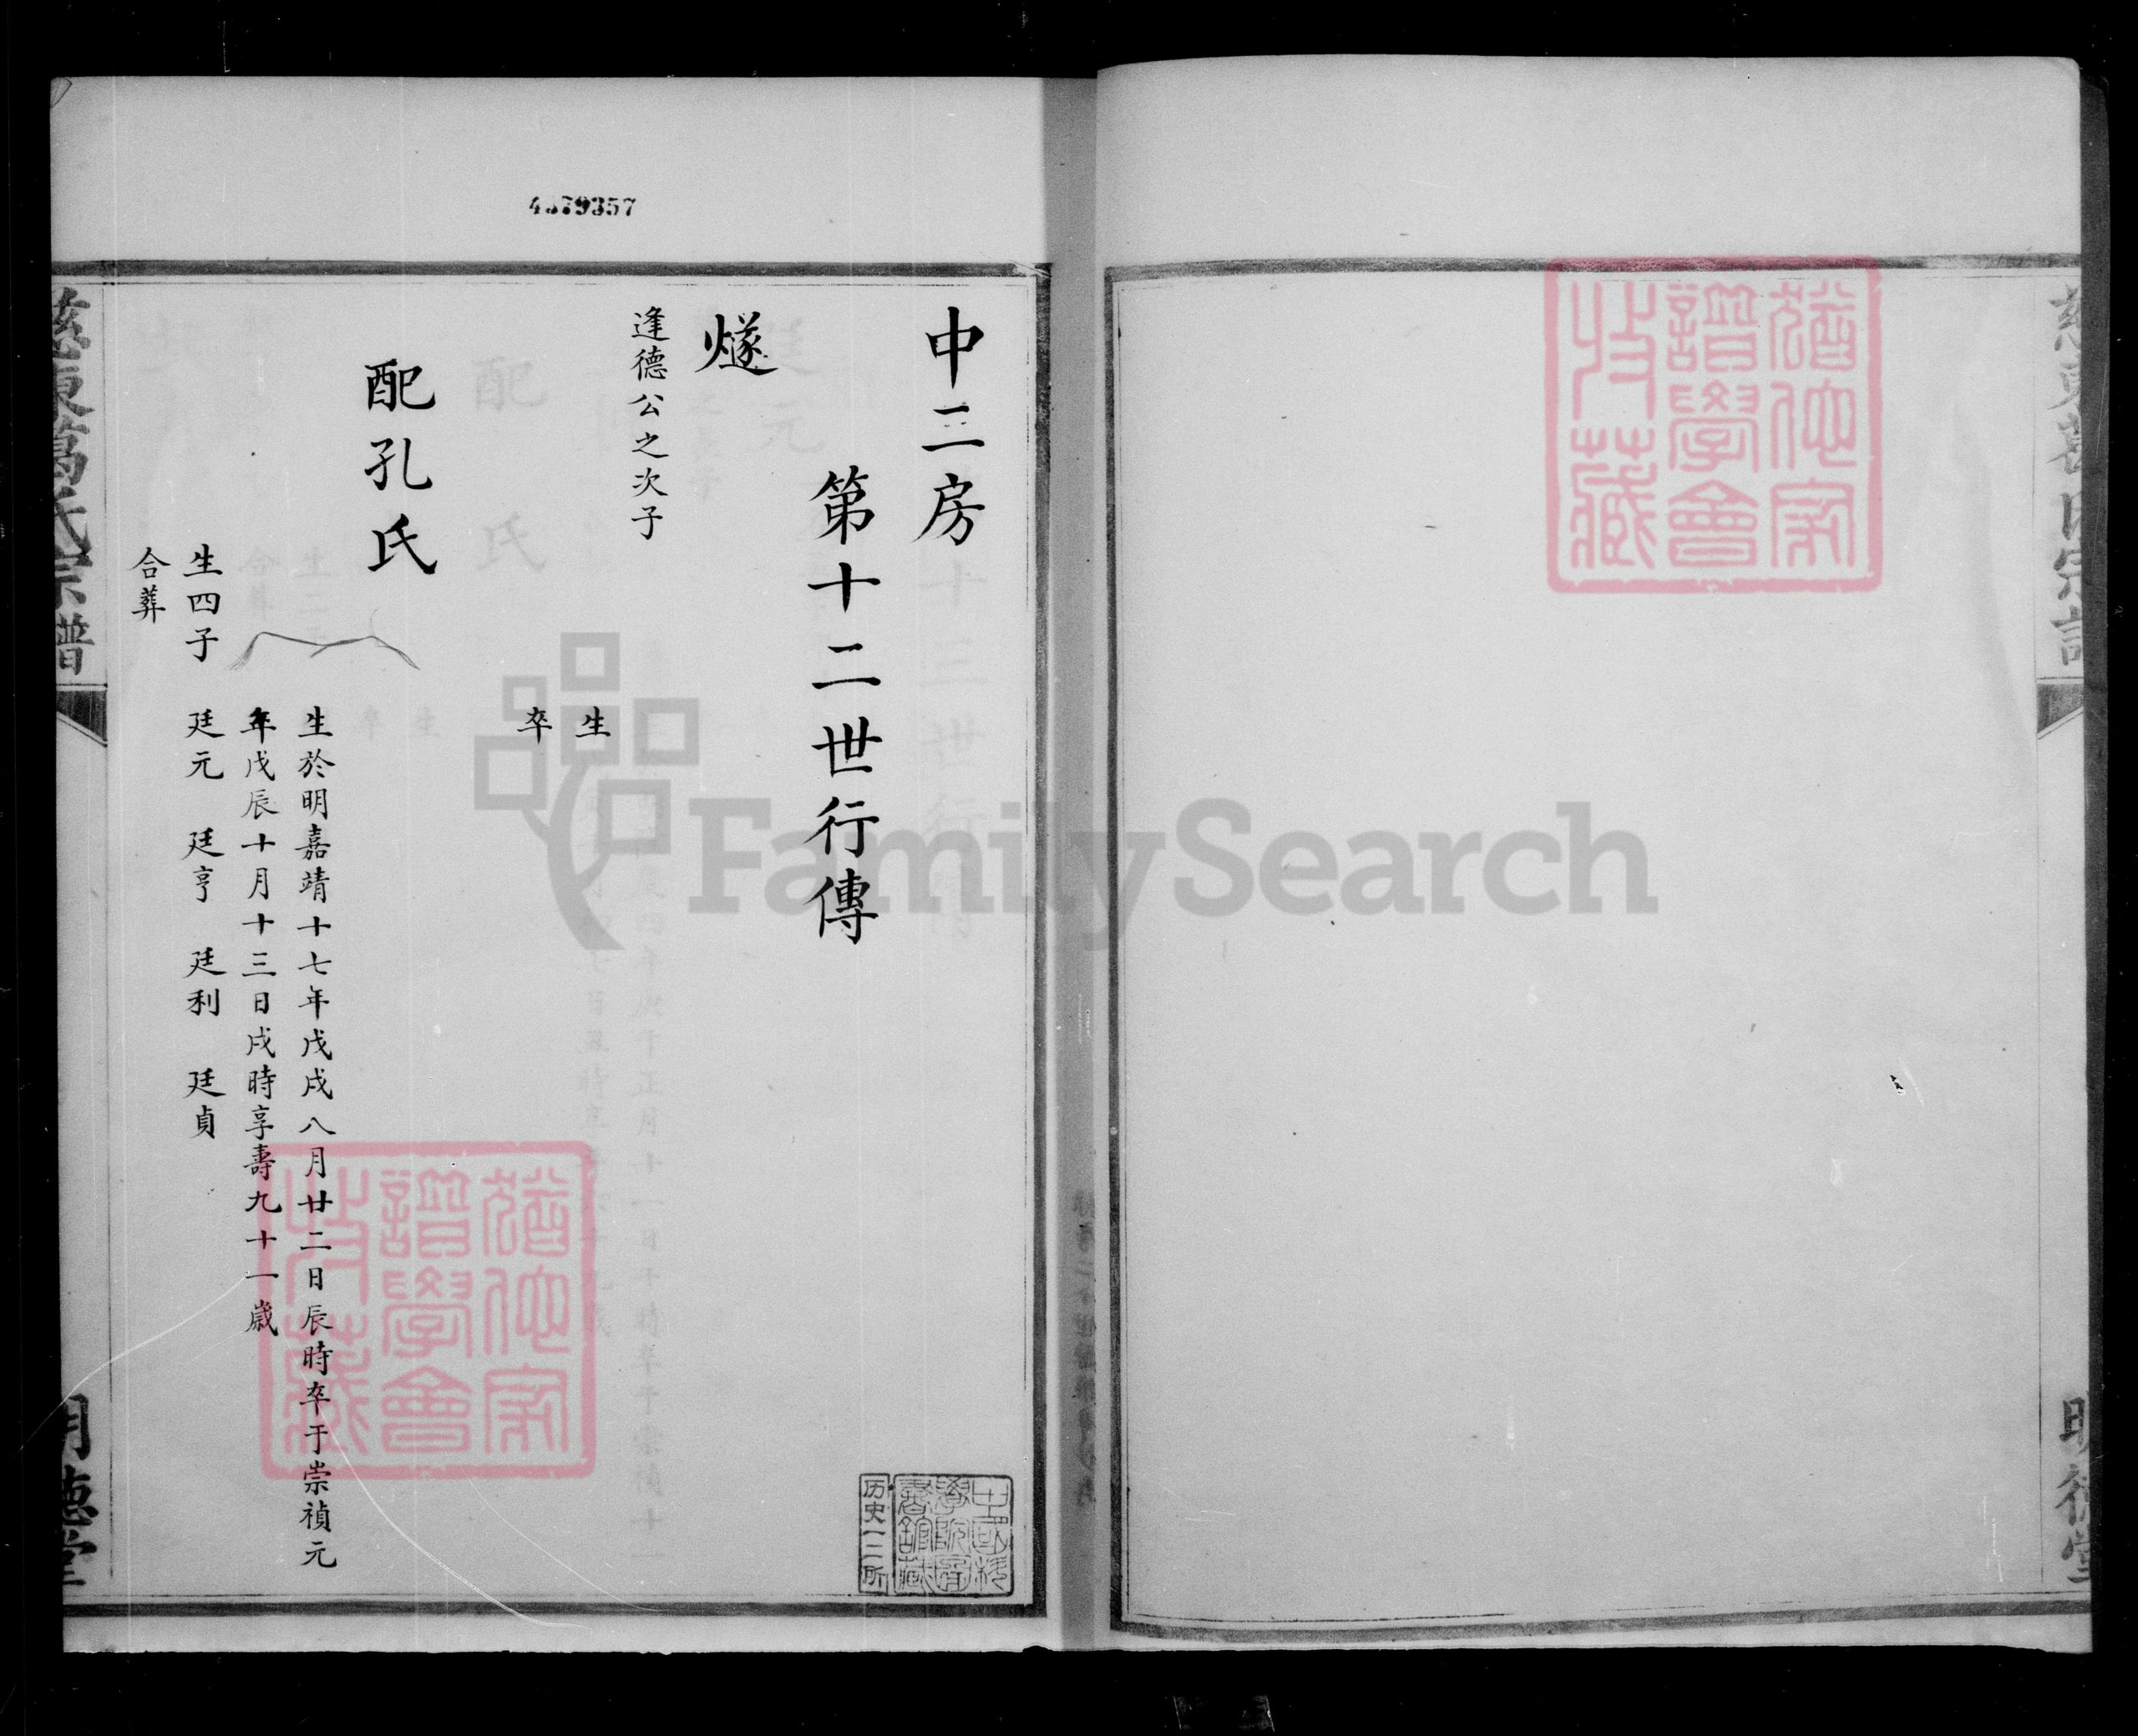 4379357
中三房
第十二世行傳
燧
逢德公之次子
生
卒
配孔氏
生於明嘉靖十七年戊戌八月廿二日辰時卒于崇禎元
年戊辰十月十三日戌時享壽九十一歲
生四子 廷元 廷亨 廷利 廷貞
合葬
慈東葛氏宗譜
明德堂
中國科學院圖書館藏
历史一二所
譜學會
收藏
FamilySearch